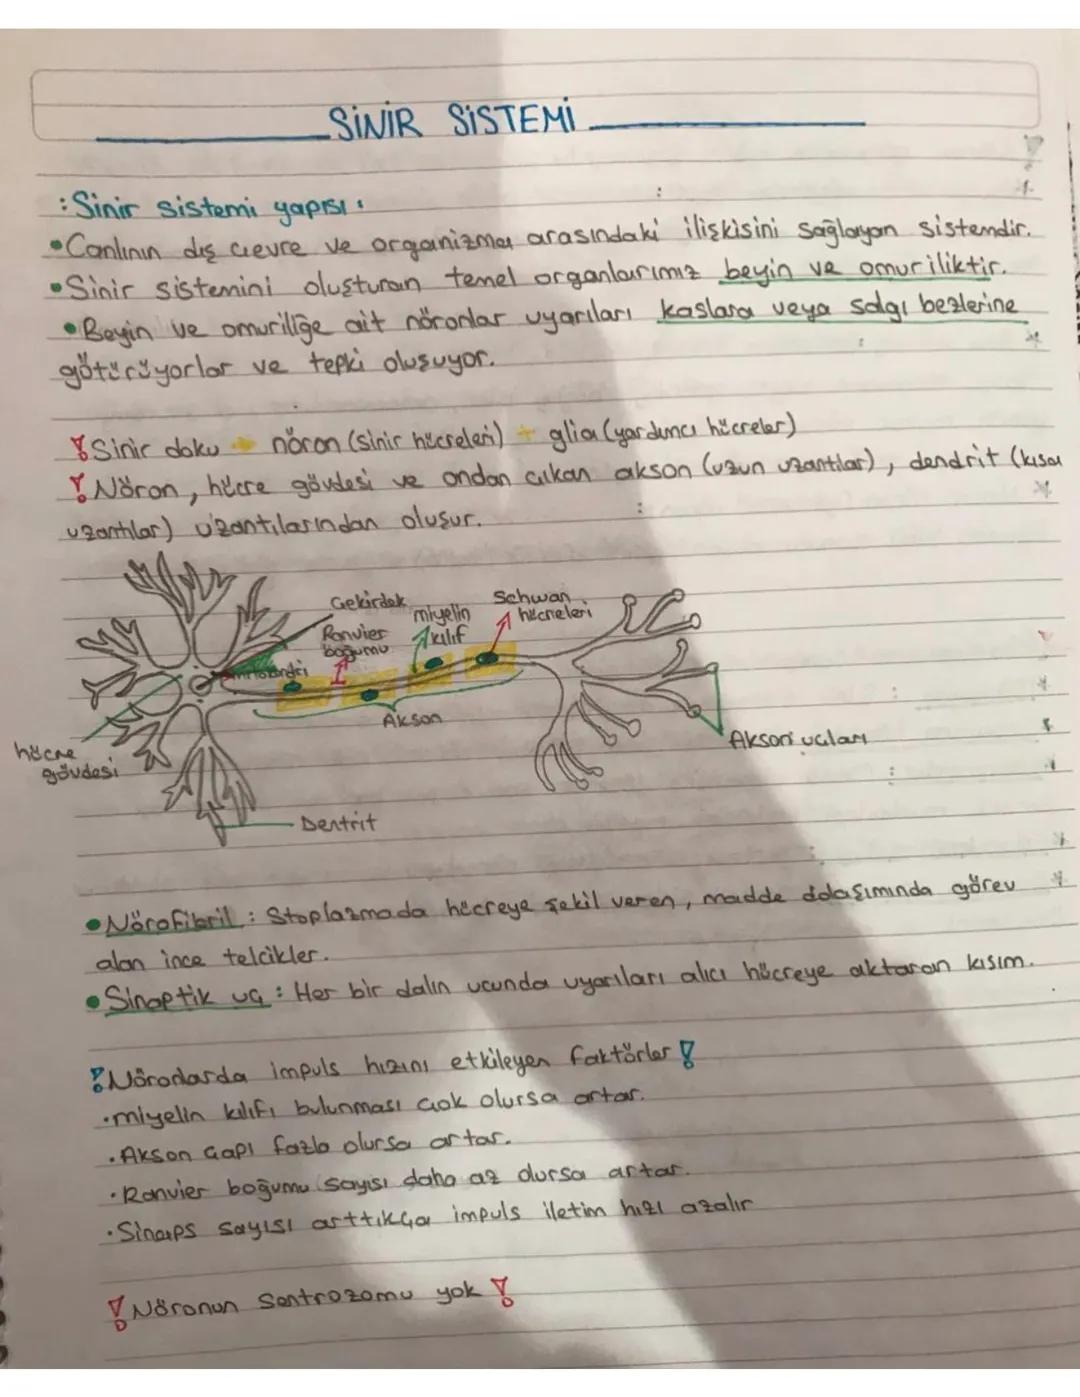 SİNİR SİSTEMİ
: Sinir sistemi yapısı :
• Canlının dış çevre ve organizma arasındaki ilişkisini sağlayan sistemdir.
• Sinir sistemini oluşturan temel organlarımız beyin ve omuriliktir.
• Beyin ve omuriliğe ait nöronlar uyarıları kaslara veya salgı bezlerine
götürüyorlar ve tepki oluşuyor.
! Sinir doku → nöron (sinir hücreleri) + glia (yardımcı hücreler)
! Nöron, hücre gövdesi ve ondan çıkan akson (uzun uzantılar), dendrit (kısa
uzantılar) uzantılarından oluşur.
Çekirdek
miyelin
kılıf
Schwan
hücreleri
Ranvier
boğumu
mitokondri
Akson
hücre
gövdesi
Akson uçları
Dentrit
• Nörofibril : Stoplazmada hücreye şekil veren, madde dolaşımında görev
alan ince telcikler.
• Sinaptik uç : Her bir dalın ucunda uyarıları alıcı hücreye aktaran kısım.
! Nöronlarda impuls hızını etkileyen faktörler !
• miyelin kılıfı bulunması çok olursa artar.
• Akson çapı fazla olursa artar.
• Ranvier boğumu sayısı daha az olursa artar.
• Sinaps sayısı arttıkça impuls iletim hızı azalır
! Nöronun sentrozomu yok !